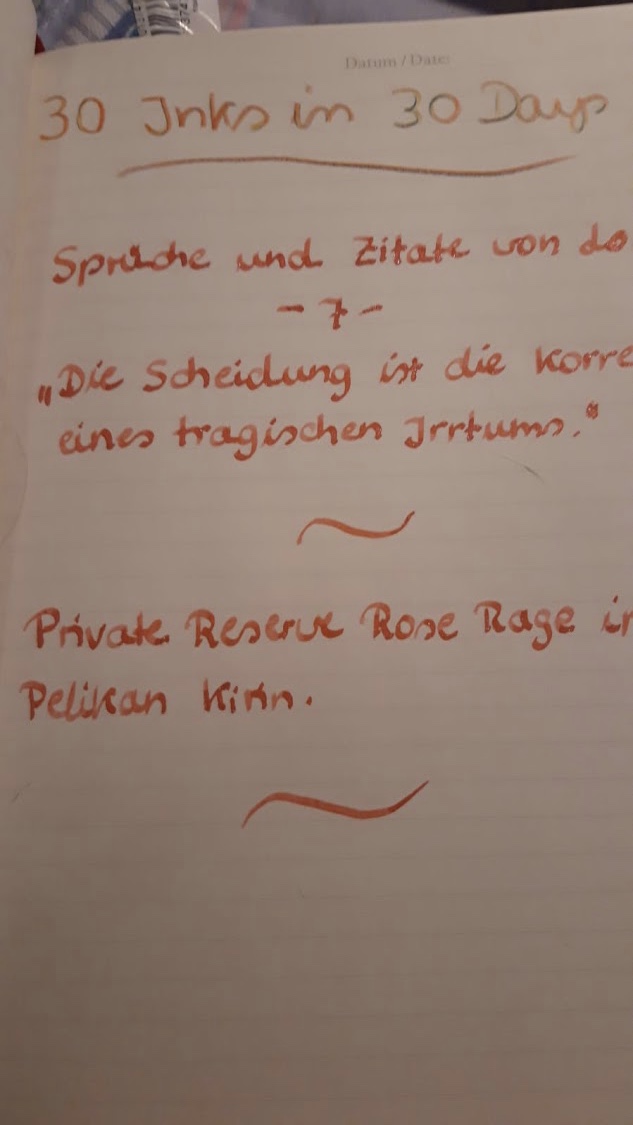 Datum / Date:
30 Inks in 30 Days
Sprüche und Zitate von do
- 7 -
„Die Scheidung ist die Korre
eines tragischen Irrtums.“
Private Reserve Rose Rage in
Pelikan Kirin.